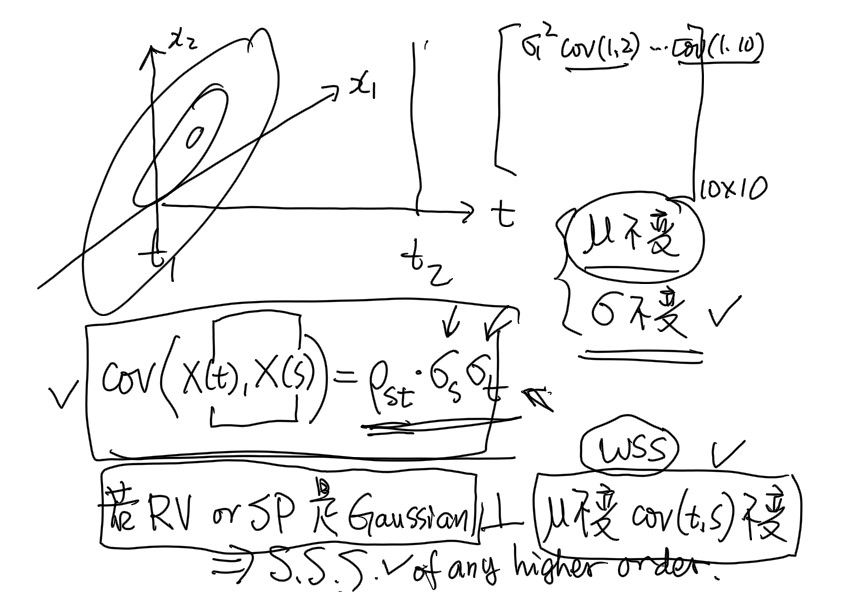 x₂
x₁
t
t₁
t₂
σ₁² cov(1,2) ... cov(1,10)
10×10
μ不变
σ不变 ✓
✓ cov(X(t), X(s)) = ρst · σs σt
WSS ✓
若 RV or SP 是 Gaussian
μ不变 cov(t,s)不变
⇒ S.S.S. ✓ of any higher order.